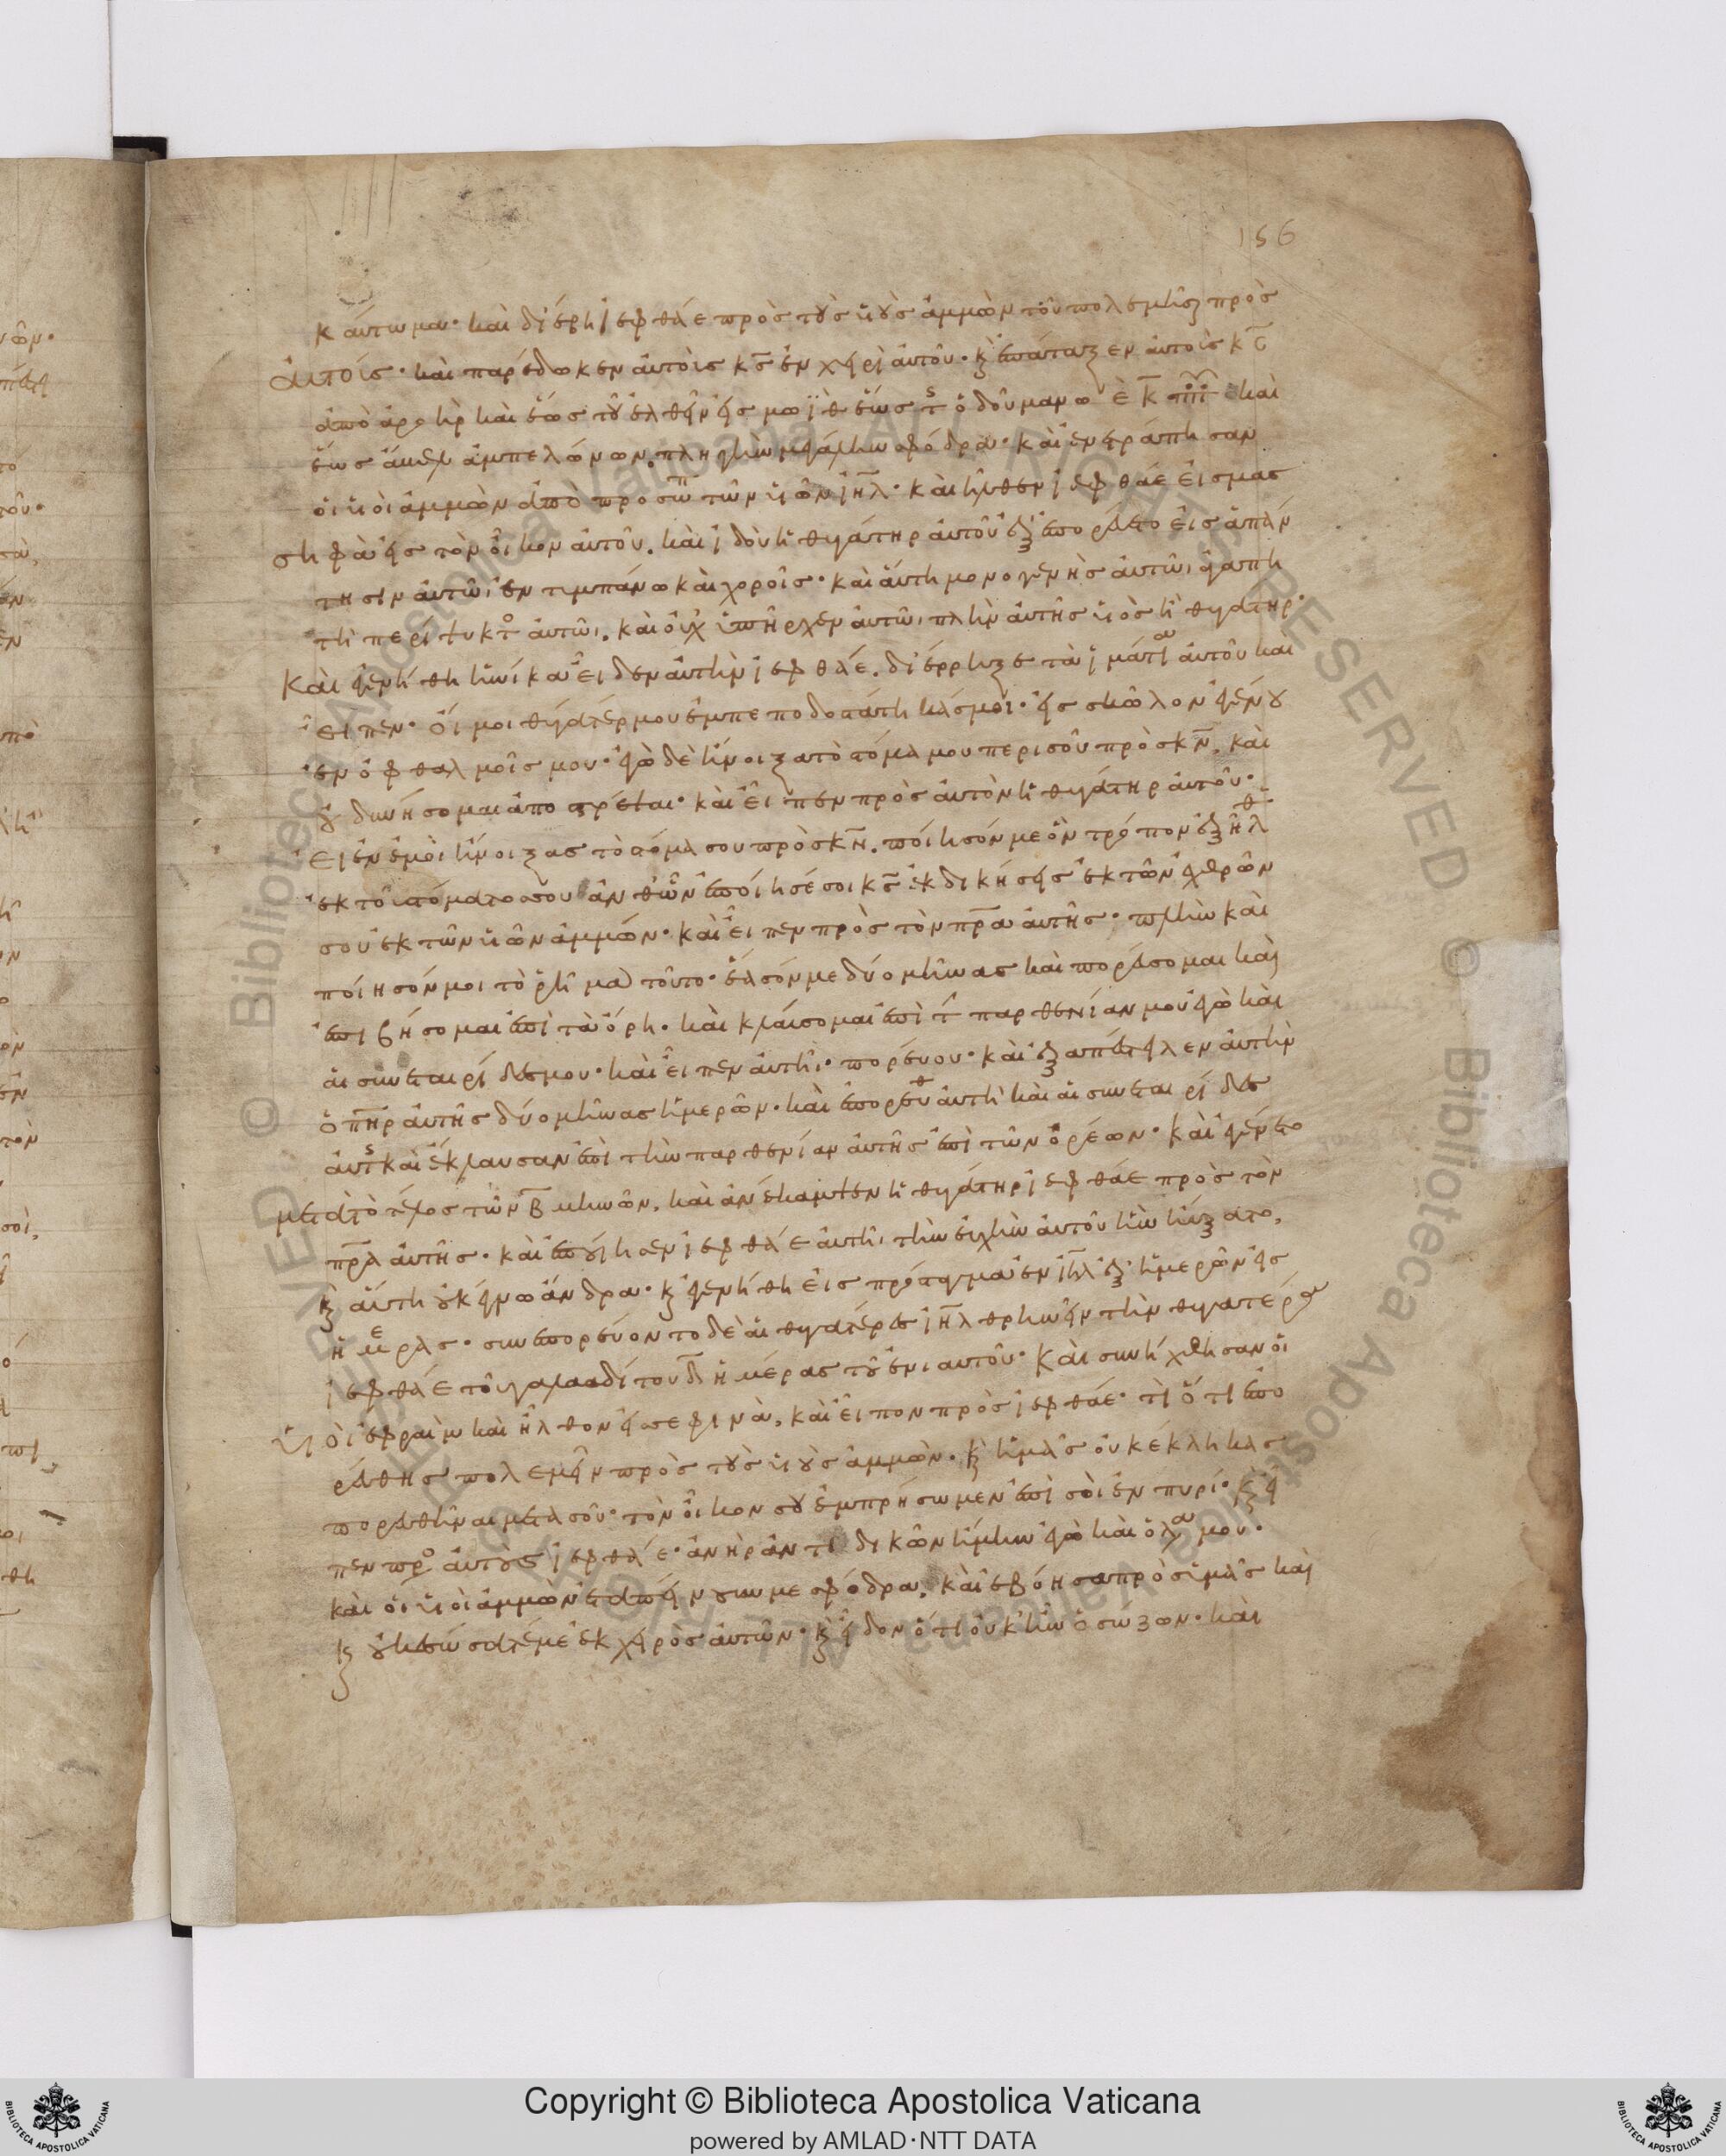 156
κάυτωμα· καὶ διέβη ἰεφθάε πρὸς τοὺς υἱοὺς ἀμμὼν τοῦ πολεμῆσαι πρὸς
ἀυτοὺς· καὶ παρέδωκεν ἀυτοὺς κς ἐν χειρὶ ἀυτοῦ· καὶ ἐπάταξεν ἀυτοὺς
ἀπὸ ἀροὴρ καὶ ἕως τοῦ ἐλθεῖν εἰς ἕως κ καὶ
ἕως ἄβελ ἀμπελώνων. πληγὴν μεγάλην σφόδρα· καὶ ἐνετράπησαν
οἱ υἱοὶ ἀμμὼν ἀπὸ προσώπ τῶν υἱῶν ιηλ· καὶ ἦλθεν ἰεφθάε εἰς μασ
σηφὰ εἰς τὸν οἶκον ἀυτοῦ. καὶ ἰδοὺ ἡ θυγάτηρ ἀυτοῦ ἐξεπορεύετο εἰς ἀπάν
τησιν ἀυτῶι ἐν τυμπάνω καὶ χοροῖς· καὶ ἀύτη μονογενὴς ἀυτῶι ἀγαπη
τὴ περίψυκτο ἀυτῶι. καὶ οὐχ ὑπῆρχεν ἀυτῶι πλὴν ἀυτῆς υἱὸς ἢ θυγάτηρ·
Καὶ ἐγενήθη ἡνίκα εἶδεν ἀυτὴν ἰεφθάε. διέρρηξε τὰ ἱμάτια ἀυτοῦ καὶ
εἶπεν· οἴμοι θύγατέρ μου ἐμπεποδοστάτηκάς μοι· εἰς σκῶλον ἐγένου
ἐν ὀφθαλμοῖς μου· ἐγὼ δὲ ἤνοιξα τὸ στόμα μου περὶ σοῦ πρὸς κν. καὶ
οὐ δυνήσομαι ἀποστρέψαι· καὶ εἶπεν πρὸς ἀυτὸν ἡ θυγάτηρ ἀυτοῦ·
εἰ ἐν ἐμοὶ ἤνοιξας τὸ στόμα σου πρὸς κν. πόιησόν με ὃν τρόπον ἐξῆλθ
ἐκ τοῦ στόματος σου ἀνθῶν ἐπόιησέ σοι κς ἐκδικήσεις ἐκ τῶν ἐχθρῶν
σου ἐκ τῶν υἱῶν ἀμμών· καὶ εἶπεν πρὸς τὸν πρα ἀυτῆς· πλὴν καὶ
πόιησόν μοι τὸ ῥῆμα τοῦτο· ἔασόν με δύο μῆνας καὶ πορεύσομαι καὶ
ἐπιβήσομαι ἐπὶ τὰ ὄρη· καὶ κλάυσομαι ἐπὶ τ παρθενίαν μου ἐγὼ καὶ
ἁι συνεταιρίδες μου· καὶ εἶπεν ἀυτῆι· πορέυου· καὶ ἐξαπέστειλεν ἀυτὴν
ὁ πηρ ἀυτῆς δύο μῆνας ἡμερῶν· καὶ ἐπορεύθ ἀυτὴ καὶ ἁι συνεταιρίδες
ἀυτς καὶ ἔκλαυσαν ἐπὶ τὴν παρθενίαν ἀυτῆς ἐπὶ τῶν ὀρέων· καὶ ἐγένετο
μετὰ τὸ τέλος τῶν β μηνῶν. καὶ ἀνέκαμψεν ἡ θυγάτηρ ἰεφθάε πρὸς τὸν
πρα ἀυτῆς· καὶ ἐπόιησεν ἰεφθάε ἀυτῆι τὴν ἐυχὴν ἀυτοῦ ἣν ἤυξατο.
καὶ ἀύτη οὐκ ἔγνω ἄνδρα· καὶ ἐγενήθη εἰς πρόσταγμα ἐν ιηλ ἐξ ἡμερῶν εἰς
ἡμέρας· συνεπορέυοντο δὲ ἁι θυγατέρες ιηλ θρηνεῖν τὴν θυγατέρα
ἰεφθάε τοῦ γαλααδίτου δ ἡμέρας τοῦ ἐνιαυτοῦ· Καὶ συνήχθησαν οἱ
υἱοὶ ἐφραὶμ καὶ ἦλθον εἰς σεφινὰ. καὶ εἶπον πρὸς ἰεφθάε· τί ὅτι ἐπο
ρέυθης πολεμεῖν πρὸς τοὺς υἱοὺς ἀμμὼν· καὶ ἡμᾶς ὀυ κέκληκας
πορευθῆναι μετα σοῦ· τὸν οἶκον σου ἐμπρήσωμεν ἐπὶ σὸι ἐν πυρί· καὶ εἶ
πεν προ ἀυτοὺς ἰεφθάε· ἀνὴρ ἀντιδικῶν ἤμην ἐγὼ καὶ ὁ λα μου·
καὶ οἱ υἱοὶ ἀμμὼν ἐταπείνουν με σφόδρα. καὶ ἐβόησα πρὸς ὑμᾶς καὶ
καὶ οὐκ ἐσώσατέ με ἐκ χειρὸς ἀυτῶν· καὶ εἶδον ὅτι ὀυκ ἦν ὁ σώζων· καὶ
Copyright © Biblioteca Apostolica Vaticana
powered by AMLAD·NTT DATA